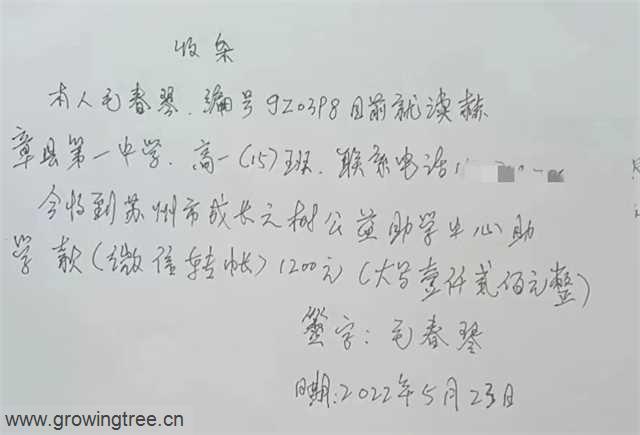 收条
本人毛春琴.编号gZ0398目前就读赫
章县第一中学.高一(15)班.联系电话1
今收到苏州市成长之树公益助学中心助
学款(微信转帐)1200元(大写壹仟贰佰元整)
签字:毛春琴
日期:2022年5月23日
www.growingtree.cn